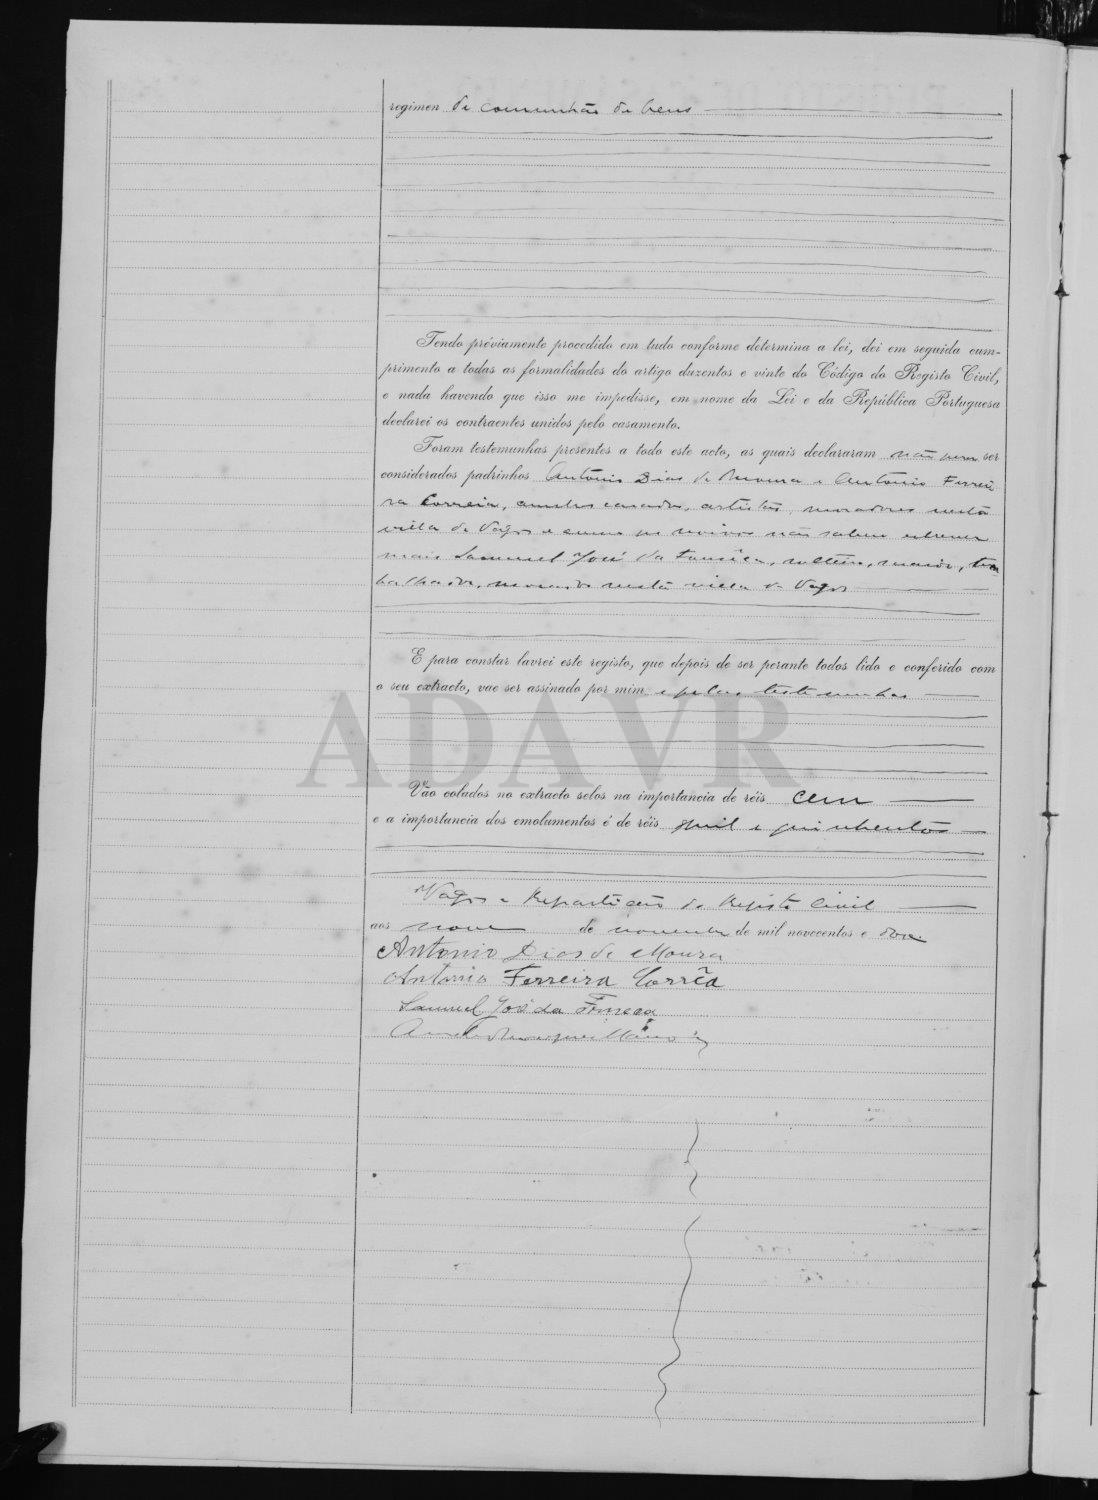 regimen de comunhão de bens
Tendo préviamente procedido em tudo conforme determina a lei, dei em seguida cum-
primento a todas as formalidades do artigo duzentos e vinte do Código do Registo Civil,
e nada havendo que isso me impedisse, em nome da Lei e da República Portuguesa
declarei os contraentes unidos pelo casamento.
Foram testemunhas presentes a todo este acto, as quais declararam não ser
considerados padrinhos Antonio Dias de Moura e Antonio Ferrei
ra Correia, ambos casados, artistas, moradores nesta
villa de Vagos e como os noivos não sabem escrever
mais Samuel José da Fonseca, solteiro, maior, tra
balhador, morador nesta villa de Vagos
E para constar lavrei este registo, que depois de ser perante todos lido e conferido com
o seu extracto, vae ser assinado por mim e pelas testemunhas
ADAVR
Vão colados no extracto selos na importancia de réis cem
e a importancia dos emolumentos é de réis mil e quinhentos
Vagos e Repartição do Registo Civil
aos nove de novembro de mil novecentos e doze
Antonio Dias de Moura
Antonio Ferreira Corrêa
Samuel José da Fonseca